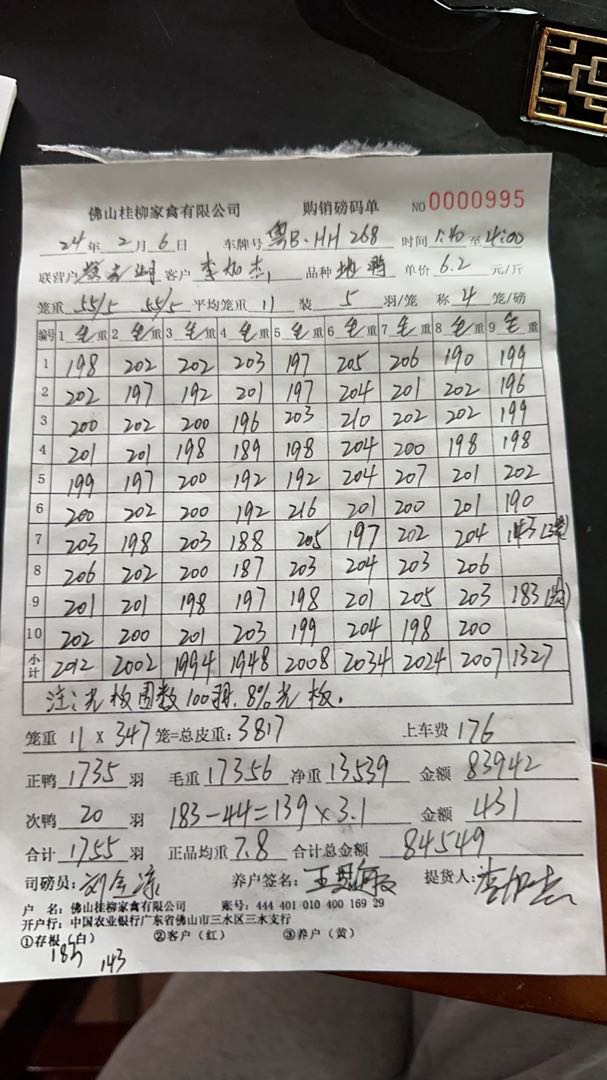 佛山桂柳家禽有限公司 购销磅码单 NO 0000995
24 年 2 月 6 日 车牌号 粤B·HH 268 时间 1:40 至 4:00
联营户 客户 李加杰 品种 单价 6.2 元/斤
笼重 55/5 55/5 平均笼重 11 装 5 羽/笼 称 4 笼/磅
编号 1 毛 重 2 毛 重 3 毛 重 4 毛 重 5 毛 重 6 毛 重 7 毛 重 8 毛 重 9 毛 重
1 198 202 202 203 197 205 206 190 199
2 202 197 192 201 197 204 201 202 196
3 200 202 200 196 203 210 202 202 199
4 201 201 198 189 198 204 200 198 198
5 199 197 200 192 192 204 207 201 202
6 200 202 200 192 216 201 200 201 190
7 203 198 203 188 205 197 202 204 143
8 206 202 200 187 203 204 203 206
9 201 201 198 197 198 201 205 203 183
10 202 200 201 203 199 204 198 200
小计 2012 2002 1994 1948 2008 2034 2024 2007 1327
注:光板因数100羽,8%光板.
笼重 11 X 347 笼=总皮重: 3817 上车费 176
正鸭 1735 羽 毛重 17356 净重 13539 金额 83942
次鸭 20 羽 183-44=139×3.1 金额 431
合计 1755 羽 正品均重 7.8 合计总金额 84549
司磅员: 养户签名: 提货人: 李加杰
户 名:佛山桂柳家禽有限公司 账号:444 401 010 400 169 29
开户行:中国农业银行广东省佛山市三水区三水支行
①存根(白) ②客户(红) ③养户(黄)
143